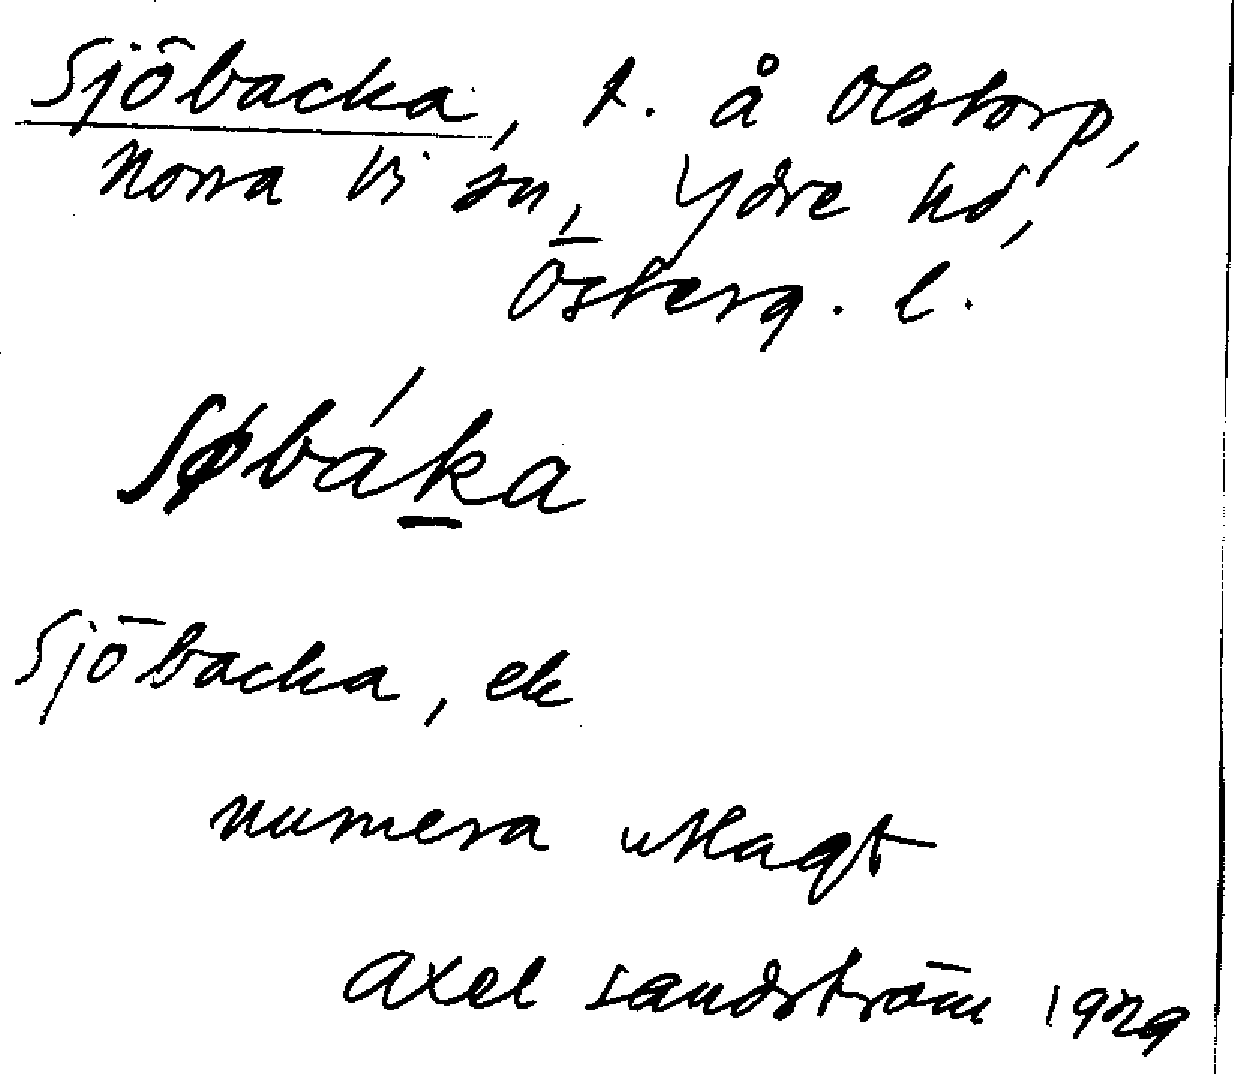 Sjöbacka, t. å Olstorp,
Norra Vi sn, Ydre hd,
Österg. l.
Sjöbacka, ek
numera utlagt
Axel Sandström 1929